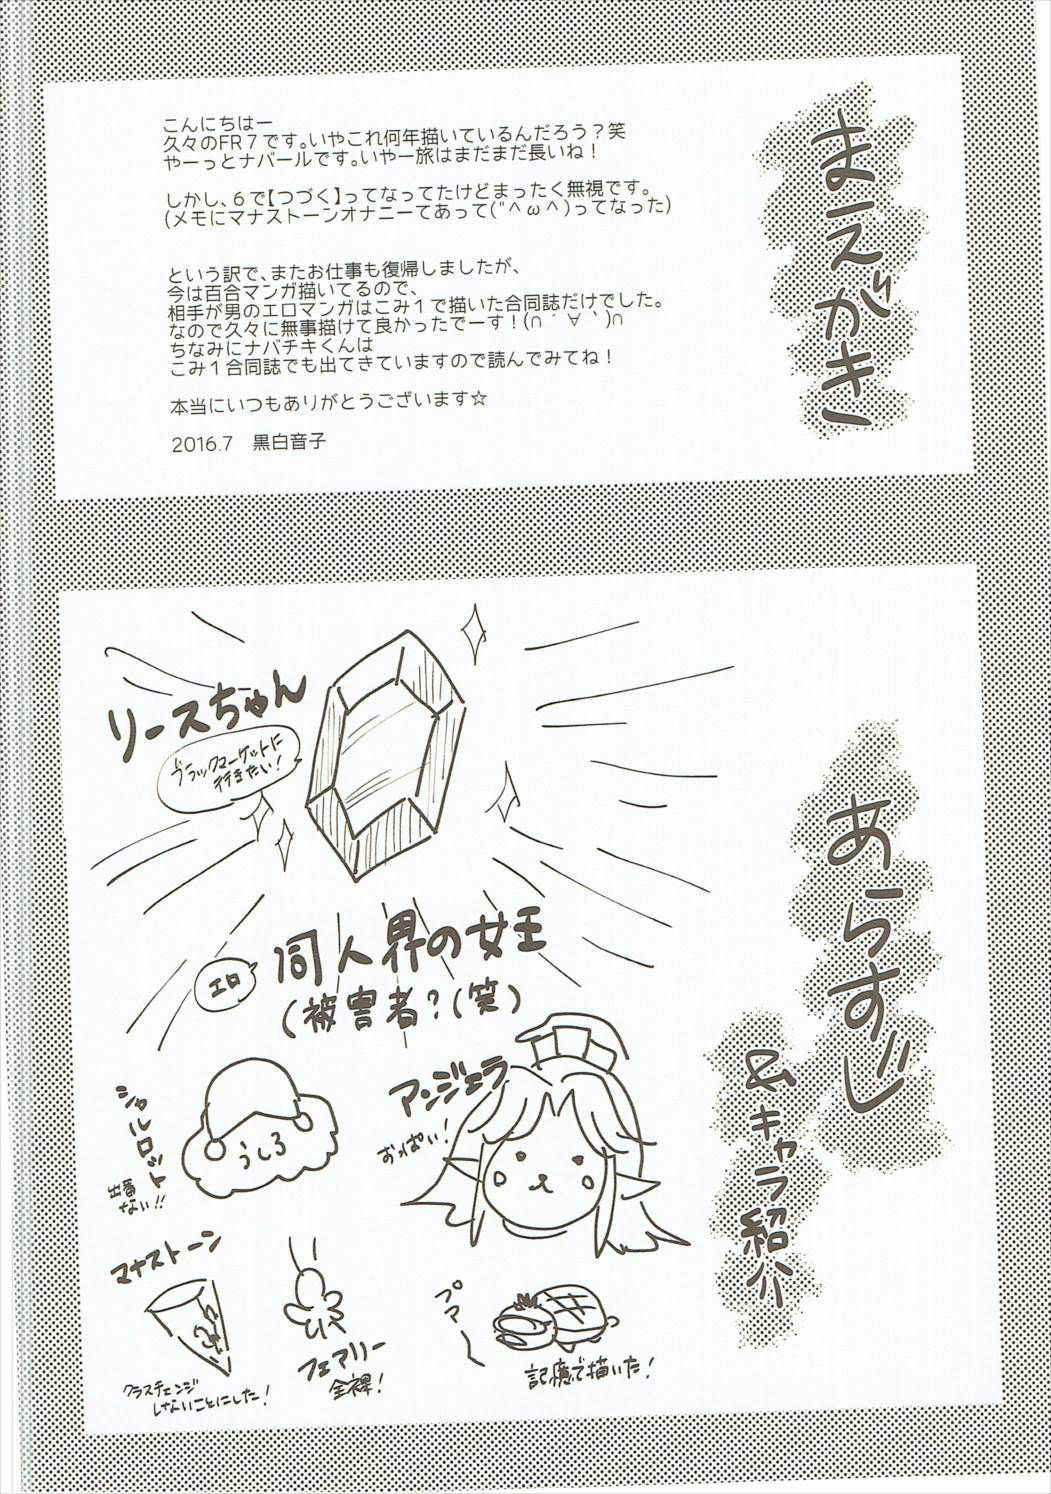 まえがき
こんにちはー
久々のFR7です。いやこれ何年描いているんだろう？笑
やーっとナバールです。いやー旅はまだまだ長いね！
しかし、6で【つづく】ってなってたけどまったく無視です。
(メモにマナストーンオナニーてあって("^ω^)ってなった)
という訳で、またお仕事も復帰しましたが、
今は百合マンガ描いてるので、
相手が男のエロマンガはこみ1で描いた合同誌だけでした。
なので久々に無事描けて良かったでーす！(∩´∀｀)∩
ちなみにナバチキくんは
こみ1合同誌でも出てきていますので読んでみてね！
本当にいつもありがとうございます☆
2016.7　黒白音子
あらすじ
&キャラ紹介
リースちゃん
ブラックマーケットに
行きたい！
エロ
同人界の女王
(被害者？(笑)
アンジェラ
おっぱい！
シャルロット
出番
ない!!
うしろ
マナストーン
クラスチェンジ
しないことにした！
フェアリー
全裸！
プマー
記憶で描いた！